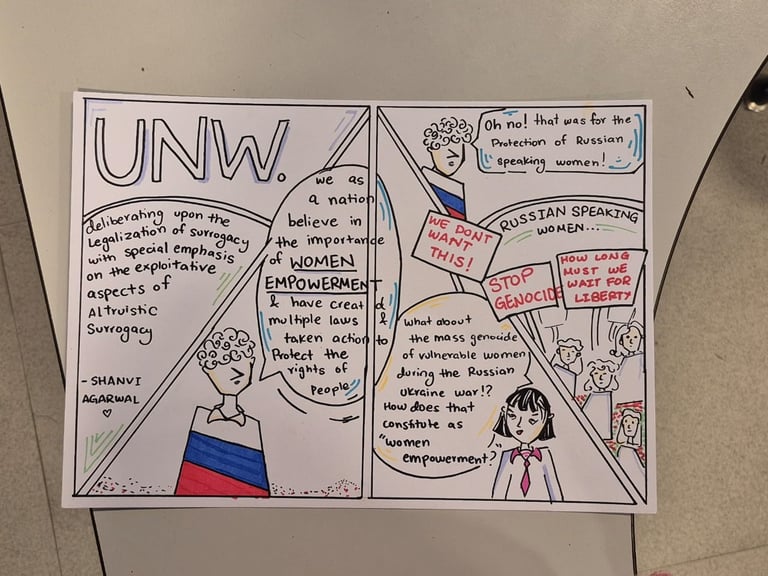 UNW.
deliberating upon the
Legalization of Surrogacy
with special emphasis
on the exploitative
aspects of
Altruistic
Surrogacy
- SHANVI
AGARWAL
we as
a nation
believe in
the importance
of WOMEN
EMPOWERMENT
& have creat d
multiple laws &
taken action to
Protect the
rights of
People
Oh no! that was for the
Protection of Russian
speaking women!
RUSSIAN SPEAKING
WOMEN...
WE DONT
WANT
THIS!
STOP
GENOCIDE
HOW LONG
MUST WE
WAIT FOR
LIBERTY
What about
the mass genocide
of vulnerable women
during the Russian
Ukraine war!?
How does that
constitute as
"women
empowerment?